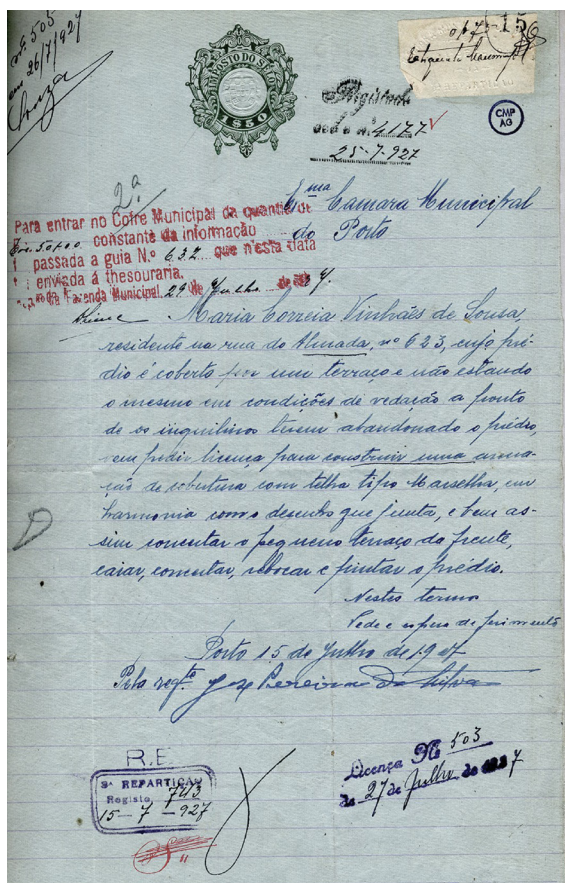 nº. 505
em 26/7/927
Souza
IMPOSTO DO SELO
1$50
15
Registado
sob o nº. 4177
25-7-927
CMP
AG
2ª
Exma Camara Municipal
do Porto
Para entrar no Cofre Municipal da quantia de
Esc. 50$00 constante da informação
passada a guia N.º 632 que n'esta data
enviada á thesouraria.
da Fazenda Municipal, 29 de Julho de
Maria Correia Vinhães de Sousa,
residente na rua do Almada, nº 623, cujo pré-
dio é coberto por um terraço e não estando
o mesmo em condições de vedação a ponto
de os inquilinos terem abandonado o prédio,
vem pedir licença para construir uma arma-
ção de cobertura com telha tipo Marselha, em
harmonia com o desenho que junta, e bem as-
sim cimentar o pequeno terraço da frente,
caiar, cimentar, rebocar e pintar o prédio.
Nestes termos
Pede e espera deferimento
Porto 15 de Julho de 1927
Pela reqte. José Pereira da Silva
R.E.
3ª REPARTIÇÃO
Registo 743
15-7-927
Licença Nº 503
de 27 de Julho de 1927